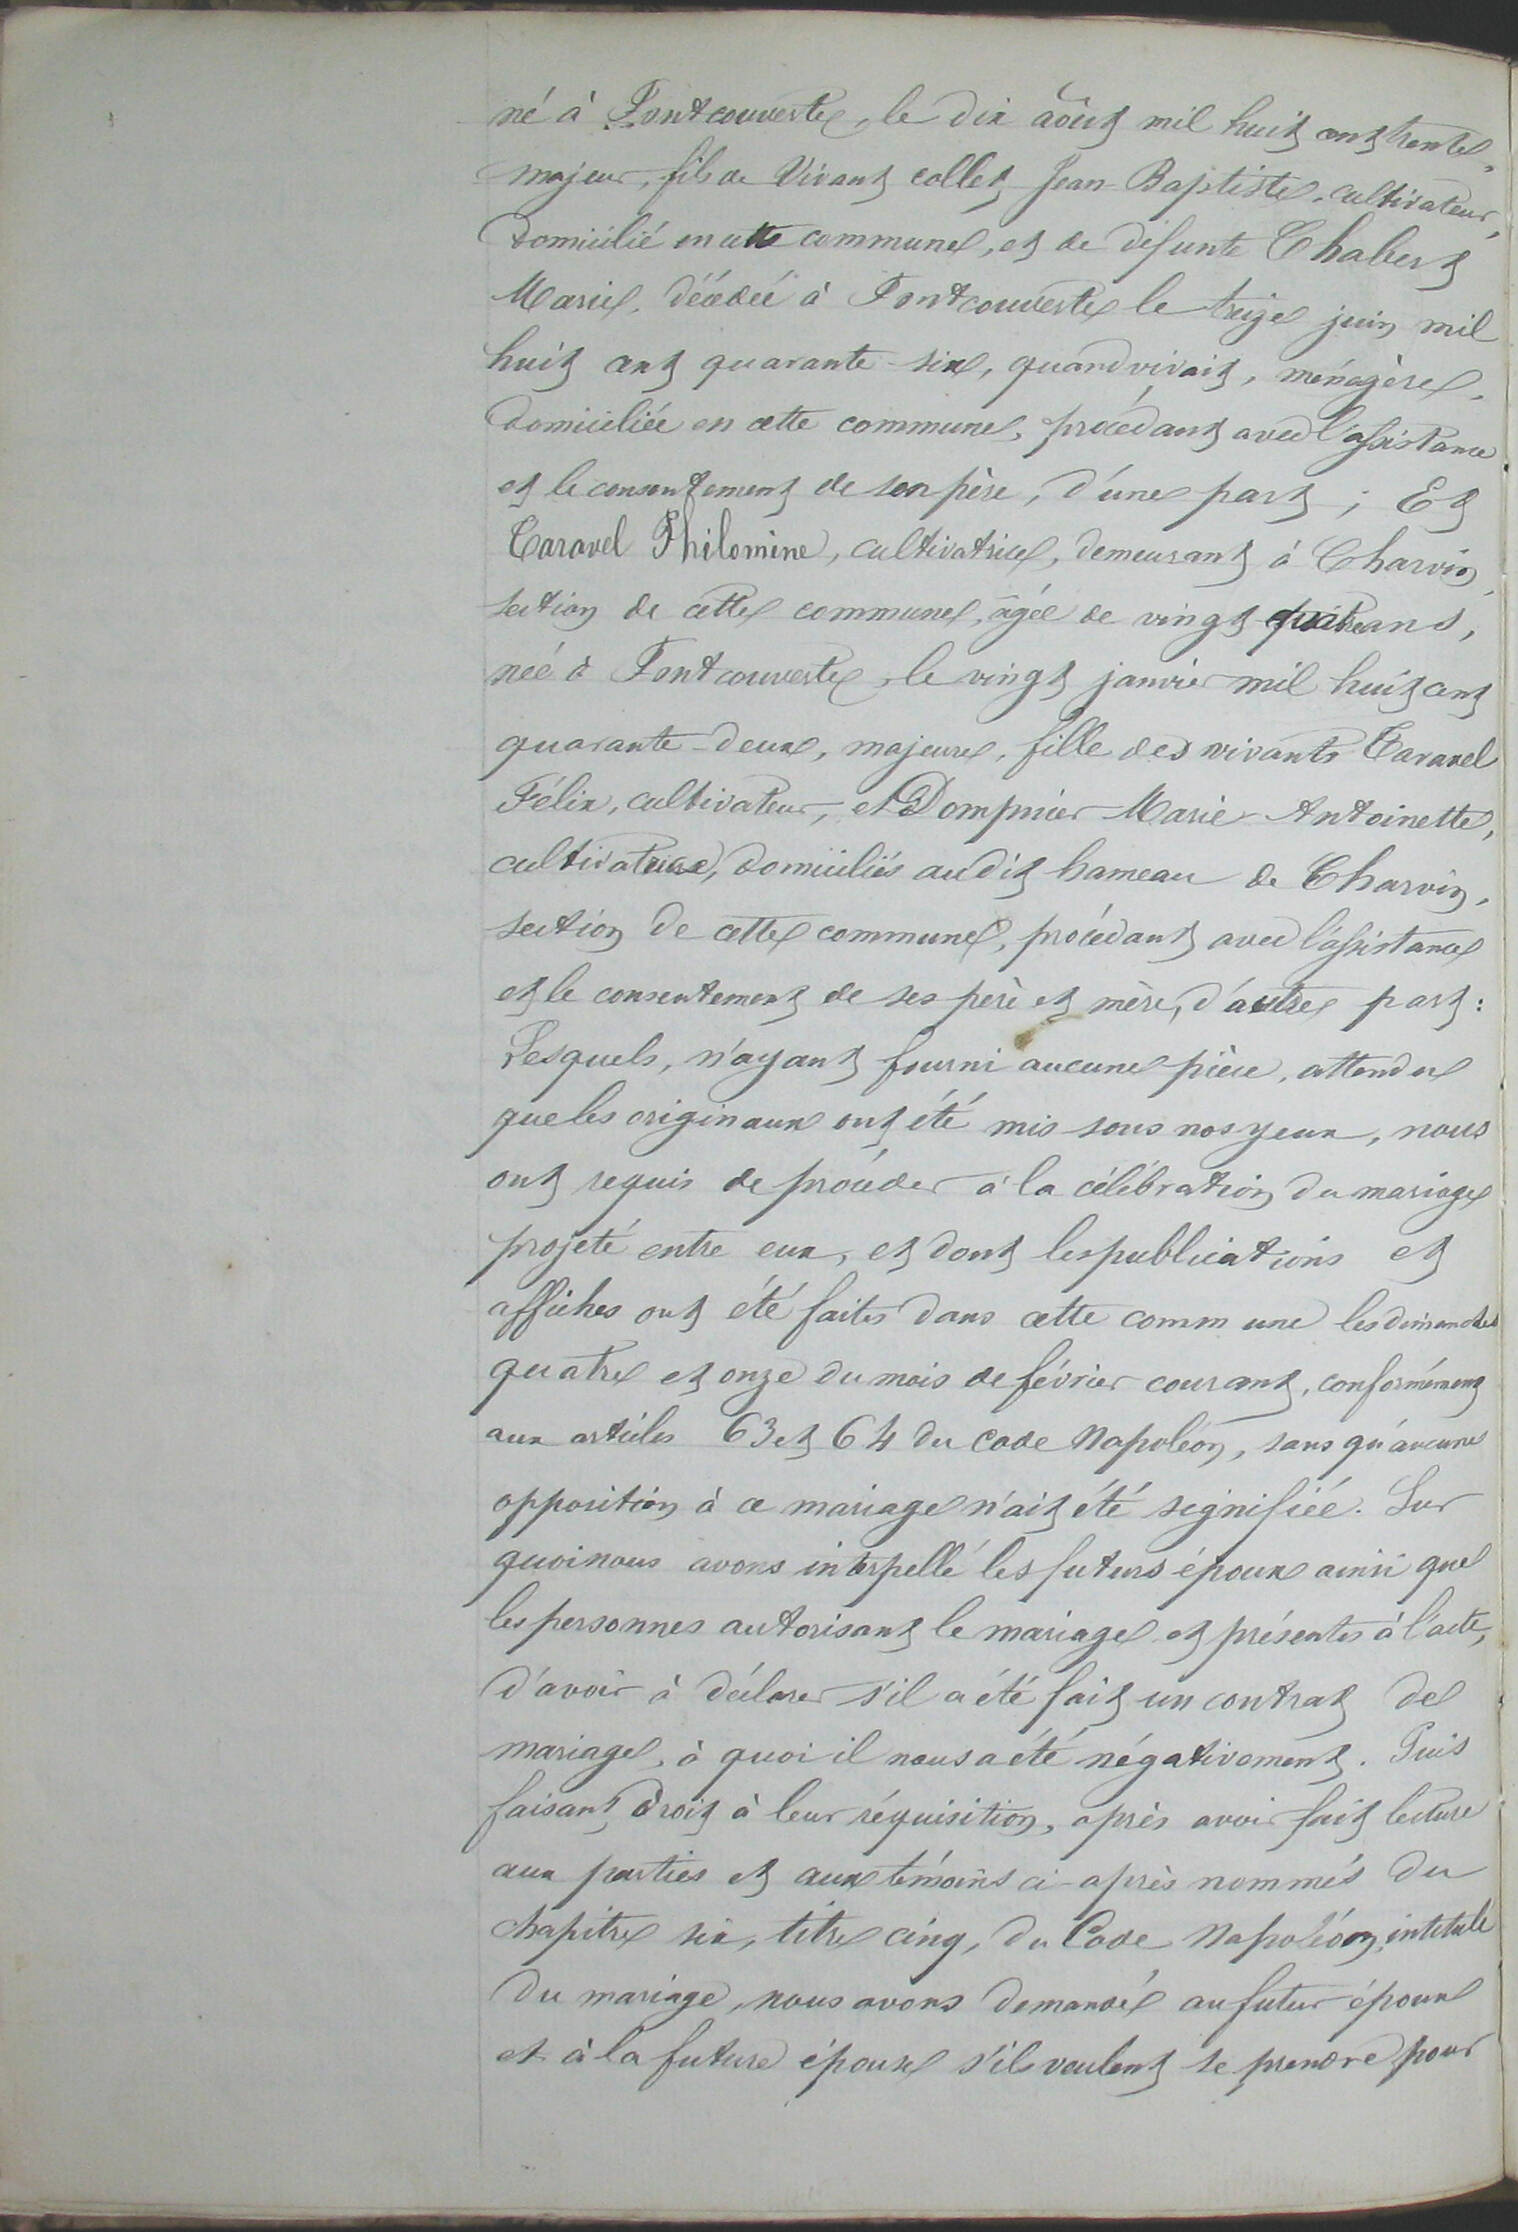 né à Fontcouverte, le dix août mil huit cent trente,
majeur, fils de vivant Collet Jean-Baptiste, cultivateur,
domicilié en cette commune, et de défunte Chabert
Marie, décédée à Fontcouverte le treize juin mil
huit cent quarante-six, quand vivait, ménagère,
domiciliée en cette commune, procédant avec l'assistance
et le consentement de son père, d'une part ; Et
Taravel Philomine, cultivatrice, demeurant à Charvin,
section de cette commune, âgée de vingt-quatre ans,
née à Fontcouverte, le vingt janvier mil huit cent
quarante-deux, majeure, fille des vivants Taravel
Félix, cultivateur, et Dompnier Marie-Antoinette,
cultivatrice, domiciliés audit hameau de Charvin,
section de cette commune, procédant avec l'assistance
et le consentement de ses père et mère, d'autre part :
Lesquels, n'ayant fourni aucune pièce, attendu
que les originaux ont été mis sous nos yeux, nous
ont requis de procéder à la célébration du mariage
projeté entre eux, et dont les publications et
affiches ont été faites dans cette commune les dimanches
quatre et onze du mois de février courant, conformément
aux articles 63 et 64 du Code Napoléon, sans qu'aucune
opposition à ce mariage n'ait été signifiée. Sur
quoi nous avons interpellé les futurs époux ainsi que
les personnes autorisant le mariage et présentes à l'acte,
d'avoir à déclarer s'il a été fait un contrat de
mariage, à quoi il nous a été négativement. Puis
faisant droit à leur réquisition, après avoir fait lecture
aux parties et aux témoins ci-après nommés du
chapitre six, titre cinq, du Code Napoléon, intitulé
du mariage, nous avons demandé au futur époux
et à la future épouse s'ils veulent se prendre pour